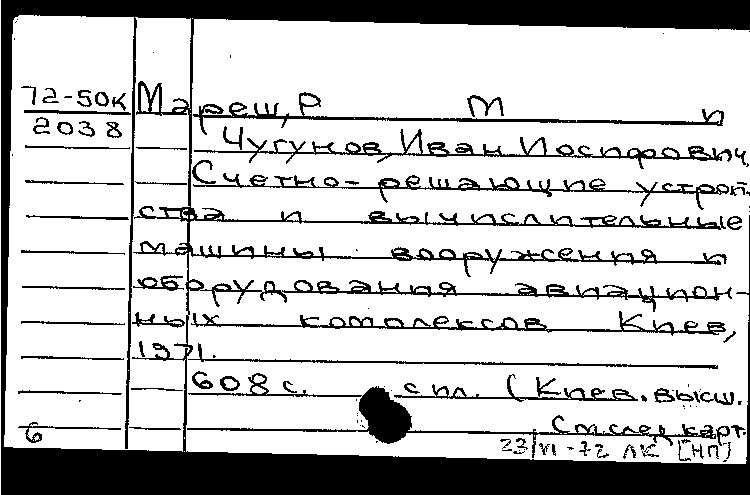 72-50к Мареш, Р М и
2038 Чугунов, Иван Иосифович
Счетно-решающие устрой-
ства и вычислительные
машины вооружения и
оборудования авиацион-
ных комплексов Киев,
1971.
608 с. с ил. (Киев. высш.
См. след. карт.
6 23/VI-72 ЛК [НП]